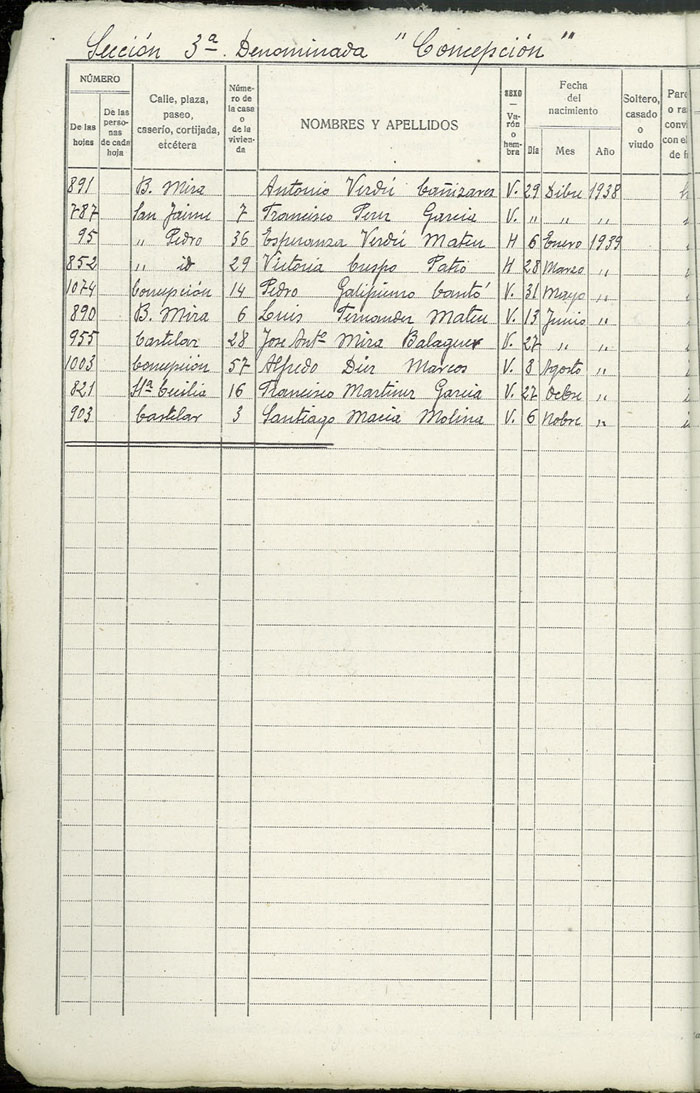 Sección 3ª Denominada "Concepción"
NÚMERO
De las hojas
De las perso- nas de cada hoja
Calle, plaza, paseo, caserío, cortijada, etcétera
Núme- ro de la casa o de la vivien- da
NOMBRES Y APELLIDOS
SEXO — Va- rón o hem- bra
Fecha del nacimiento
Día Mes Año
Soltero, casado o viudo
891 B. Mira Antonio Verdú Cañizares V. 29 Dibre 1938
787 San Jaime 7 Francisco Perez Garcia V. " " "
95 " Pedro 36 Esperanza Verdú Mateu H 6 Enero 1939
852 " id 29 Victoria Crespo H 28 Marzo "
1074 Concepción 14 Pedro Cantó V. 31 Mayo "
890 B. Mira 6 Luis Fernandez Mateu V. 13 Junio "
955 Castelar 28 Jose Antº Mira Balaguer V. 27 " "
1003 Concepción 57 Alfredo Diez Marcos V. 8 Agosto "
821 Stª Cecilia 16 Francisco Martinez Garcia V. 27 Octbre "
903 Castelar 3 Santiago Macia Molina V. 6 Nobre "